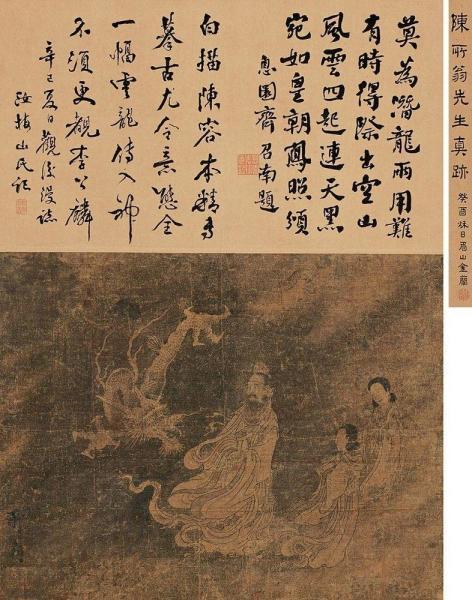 陳所翁先生真跡
癸酉秋日眉山金蘭
莫為潛龍雨用難
有時得際出空山
風雲四起連天黑
宛如皇朝鳳照頒
息園齊召南題
白描陳容本精
摹古尤令意態全
一幅雲龍傳入神
不須更觀李公麟
辛巳夏日觀後漫誌
梅山民記